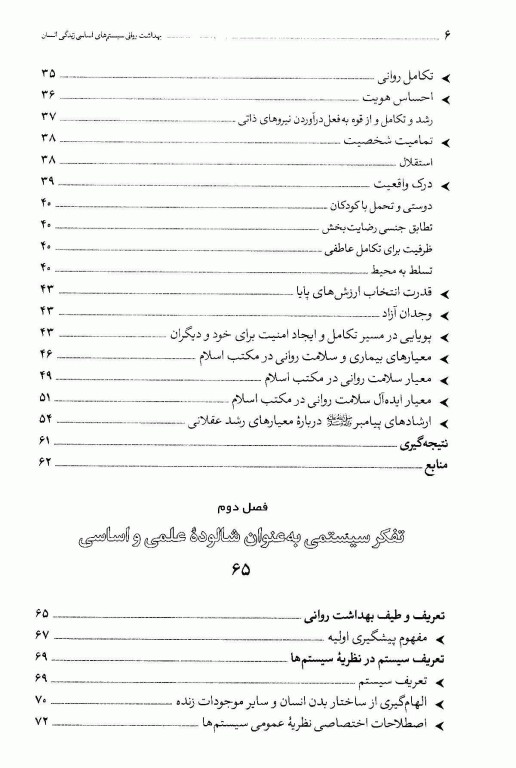 ۶ بهداشت روانی سیستم‌های اساسی زندگی انسان
تکامل روانی ۳۵
احساس هویت ۳۶
رشد و تکامل و از قوه به‌فعل‌درآوردن نیروهای ذاتی ۳۷
تمامیت شخصیت ۳۸
استقلال ۳۸
درک واقعیت ۳۹
دوستی و تحمل با کودکان ۴۰
تطابق جنسی رضایت‌بخش ۴۰
ظرفیت برای تکامل عاطفی ۴۰
تسلط به محیط ۴۰
قدرت انتخاب ارزش‌های پایا ۴۳
وجدان آزاد ۴۳
پویایی در مسیر تکامل و ایجاد امنیت برای خود و دیگران ۴۳
معیارهای بیماری و سلامت روانی در مکتب اسلام ۴۶
معیار سلامت روانی در مکتب اسلام ۴۹
معیار ایده‌آل سلامت روانی در مکتب اسلام ۵۱
ارشادهای پیامبر ﷺ دربارهٔ معیارهای رشد عقلانی ۵۴
نتیجه‌گیری ۶۱
منابع ۶۲
فصل دوم
تفکر سیستمی به‌عنوان شالودهٔ علمی و اساسی
۶۵
تعریف و طیف بهداشت روانی ۶۵
مفهوم پیشگیری اولیه ۶۷
تعریف سیستم در نظریهٔ سیستم‌ها ۶۹
تعریف سیستم ۶۹
الهام‌گیری از ساختار بدن انسان و سایر موجودات زنده ۷۰
اصطلاحات اختصاصی نظریهٔ عمومی سیستم‌ها ۷۲